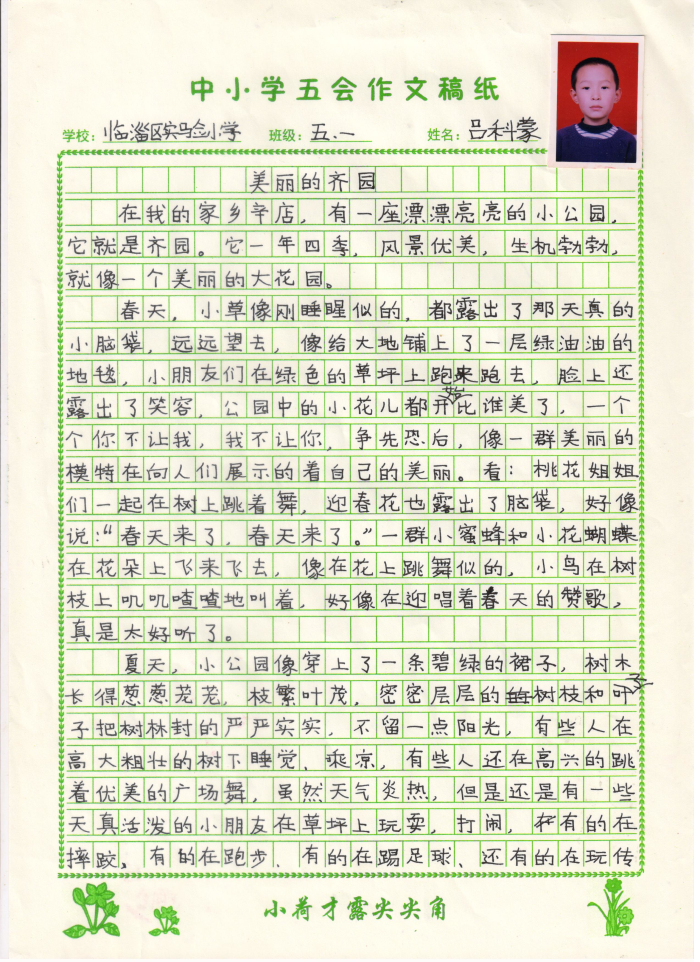 中小学五会作文稿纸
学校：临淄区实验小学 班级：五.一 姓名：吕科蒙
美丽的齐园
在我的家乡辛店，有一座漂漂亮亮的小公园，
它就是齐园。它一年四季，风景优美，生机勃勃，
就像一个美丽的大花园。
春天，小草像刚睡醒似的，都露出了那天真的
小脑袋，远远望去，像给大地铺上了一层绿油油的
地毯，小朋友们在绿色的草坪上跑来跑去，脸上还
露出了笑容，公园中的小花儿都开始比谁美了，一个
个你不让我，我不让你，争先恐后，像一群美丽的
模特在向人们展示的着自己的美丽。看：桃花姐姐
们一起在树上跳着舞，迎春花也露出了脑袋，好像
说：“春天来了，春天来了。”一群小蜜蜂和小花蝴蝶
在花朵上飞来飞去，像在花上跳舞似的，小鸟在树
枝上叽叽喳喳地叫着，好像在迎唱着春天的赞歌，
真是太好听了。
夏天，小公园像穿上了一条碧绿的裙子，树木
长得葱葱茏茏，枝繁叶茂，密密层层的树枝和叶
子把树林封的严严实实，不留一点阳光，有些人在
高大粗壮的树下睡觉、乘凉，有些人还在高兴的跳
着优美的广场舞，虽然天气炎热，但是还是有一些
天真活泼的小朋友在草坪上玩耍，打闹，有的在
摔跤，有的在跑步、有的在踢足球、还有的在玩传
小荷才露尖尖角